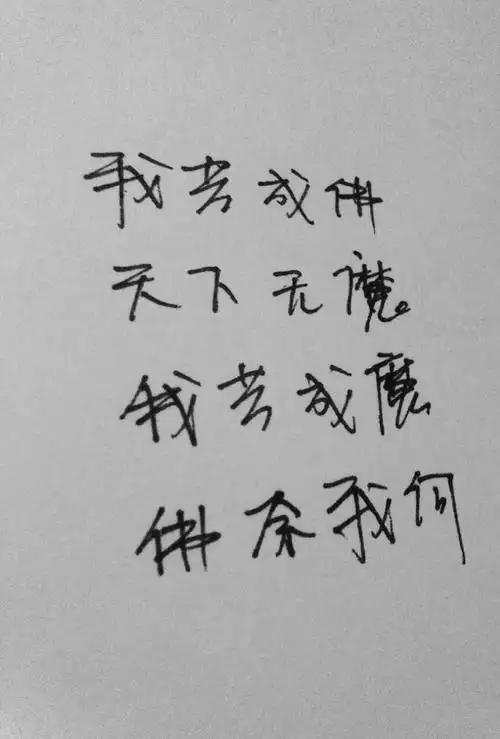 我若成佛
天下无魔
我若成魔
佛奈我何